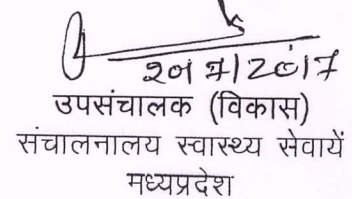 उपसंचालक (विकास)
संचालनालय स्वास्थ्य सेवायें
मध्यप्रदेश